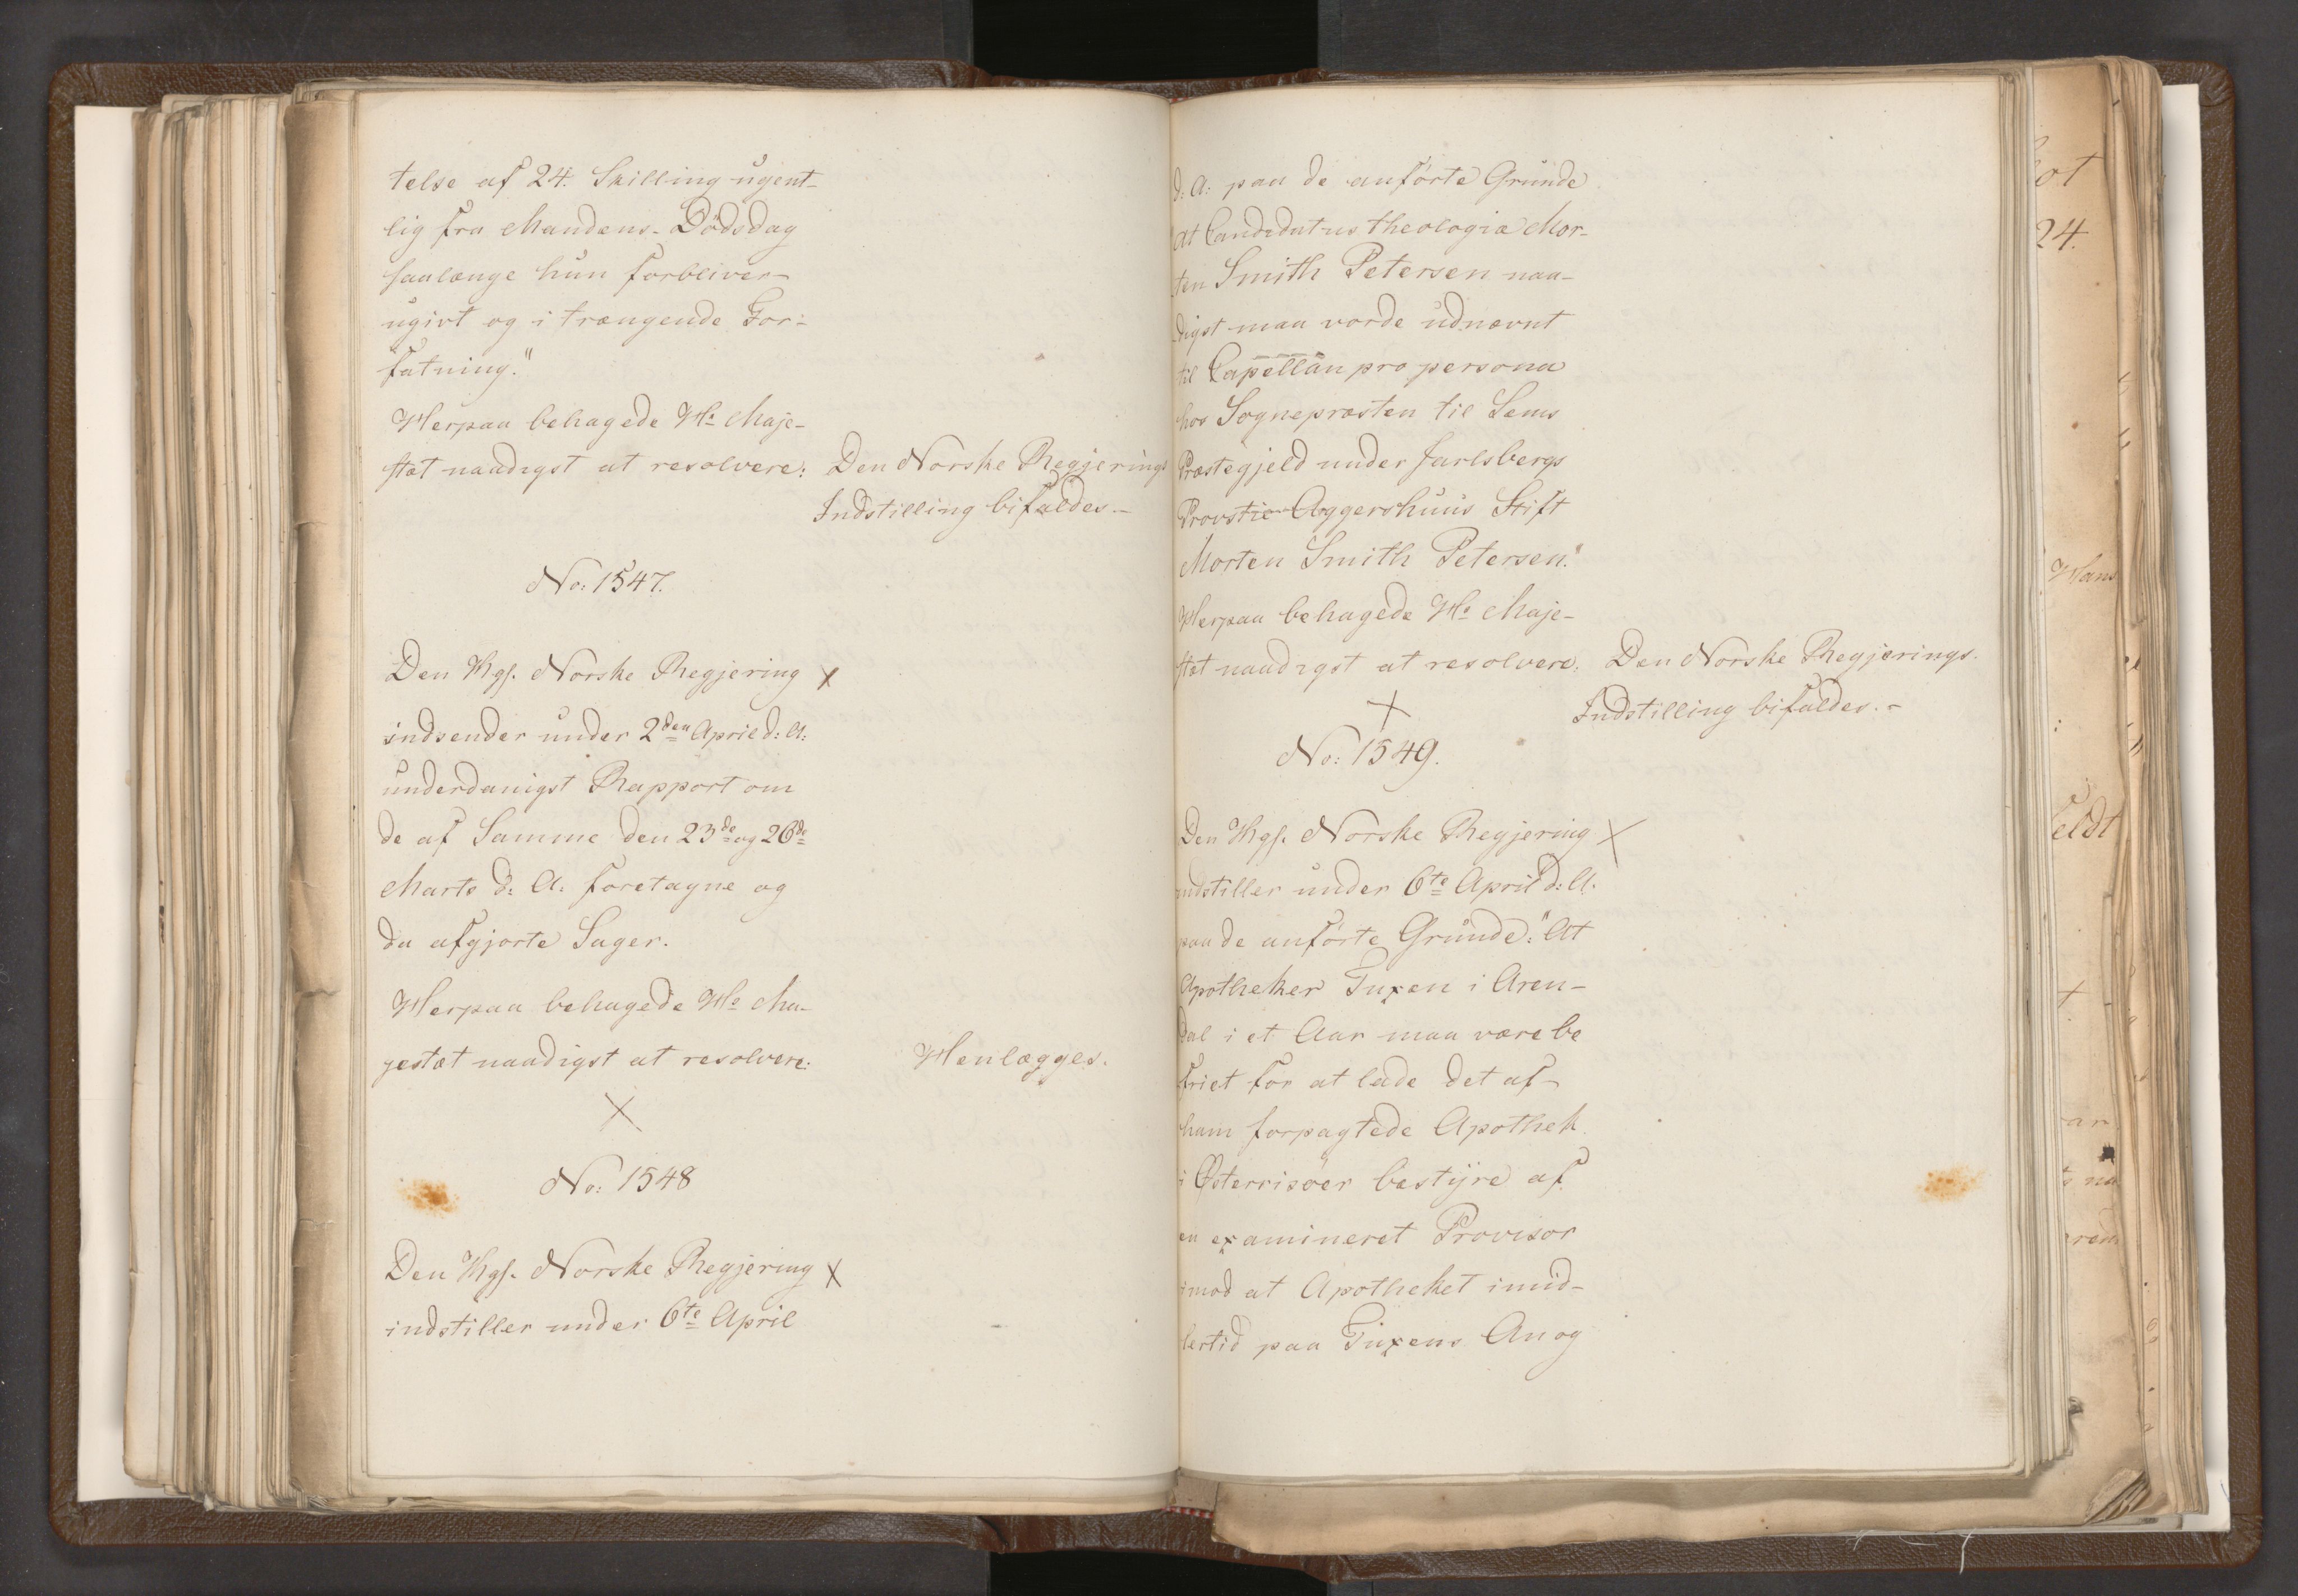 telse af 24. Skilling ugent-
lig fra Mandens Dödsdag
saalænge hun forbliver
ugivt og i trængende For-
fatning."
Herpaa behagede Hs Maje-
stæt naadigst at resolvere:
Den Norske Regjerings
Indstilling bifaldes.-
No: 1547.
Den Kgl. Norske Regjering X
indsender under 2den April d: A:
underdanigst Rapport om
de af Samme den 23de og 26de
Marts d: A: foretagne og
da afgjorte Sager.
Herpaa behagede Hs Ma-
jestæt naadigst at resolvere:
Henlægges.
X
No: 1548
Den Kgl. Norske Regjering X
indstiller under 6te April
d: A: paa de anförte Grunde
"At Candidatus theologiæ Mor-
ten Smith Petersen naa-
digst maa vorde udnævnt
til Capellan pro persona
hos Sognepræsten til Sems
Præstegjeld under Jarlsbergs
Provstie Aggershuus Stift
Morten Smith Petersen."
Herpaa behagede Hs Maje-
stæt naadigst at resolvere:
Den Norske Regjerings
Indstilling bifaldes.-
X
No: 1549.
Den Kgl. Norske Regjering X
indstiller under 6te April d: A.
paa de anförte Grunde: "At
Apotheker Tuxen i Aren-
dal i et Aar maa være be
friet for at lade det af
ham forpagtede Apothek
i Østerrisöer bestyre af
en examineret Provisor
imod at Apotheket imid-
lertid paa Tuxens An og
24.
Hans
eldt